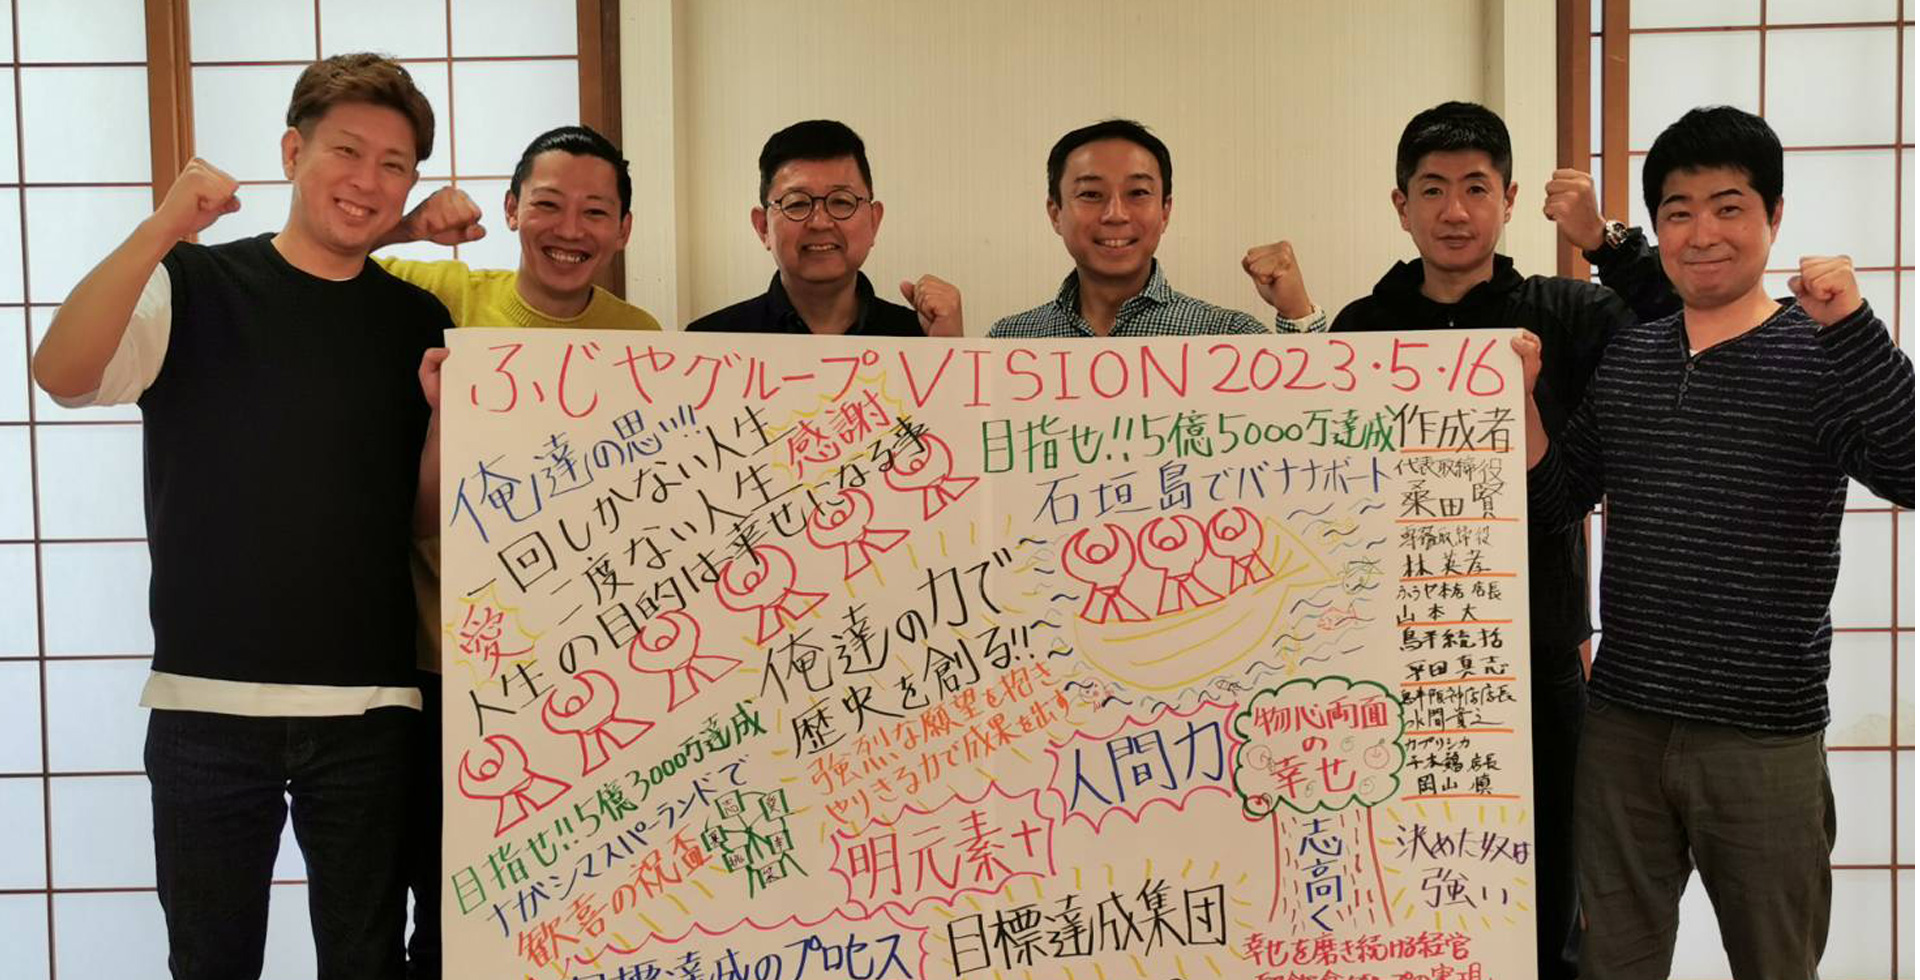 ふじやグループVISION 2023・5・16
俺達の思い!!
一回しかない人生
二度ない人生 感謝
人生の目的は幸せになる事
愛
目指せ!!5億5000万達成
石垣島でバナナボート
俺達の力で
歴史を創る!!
強烈な願望を抱き
やりきる力で成果を出す
目指せ!!5億3000万達成
ナガシマスパーランドで
歓喜の祝盃
明元素+
人間力
物心両面
の
幸せ
志高く
作成者
代表取締役
桑田賢
専務取締役
林英孝
山本大
鳥平統括
平田真志
千本鶏店長
岡山慎
決めた奴は
強い
目標達成のプロセス
目標達成集団
幸せを磨き続ける経営